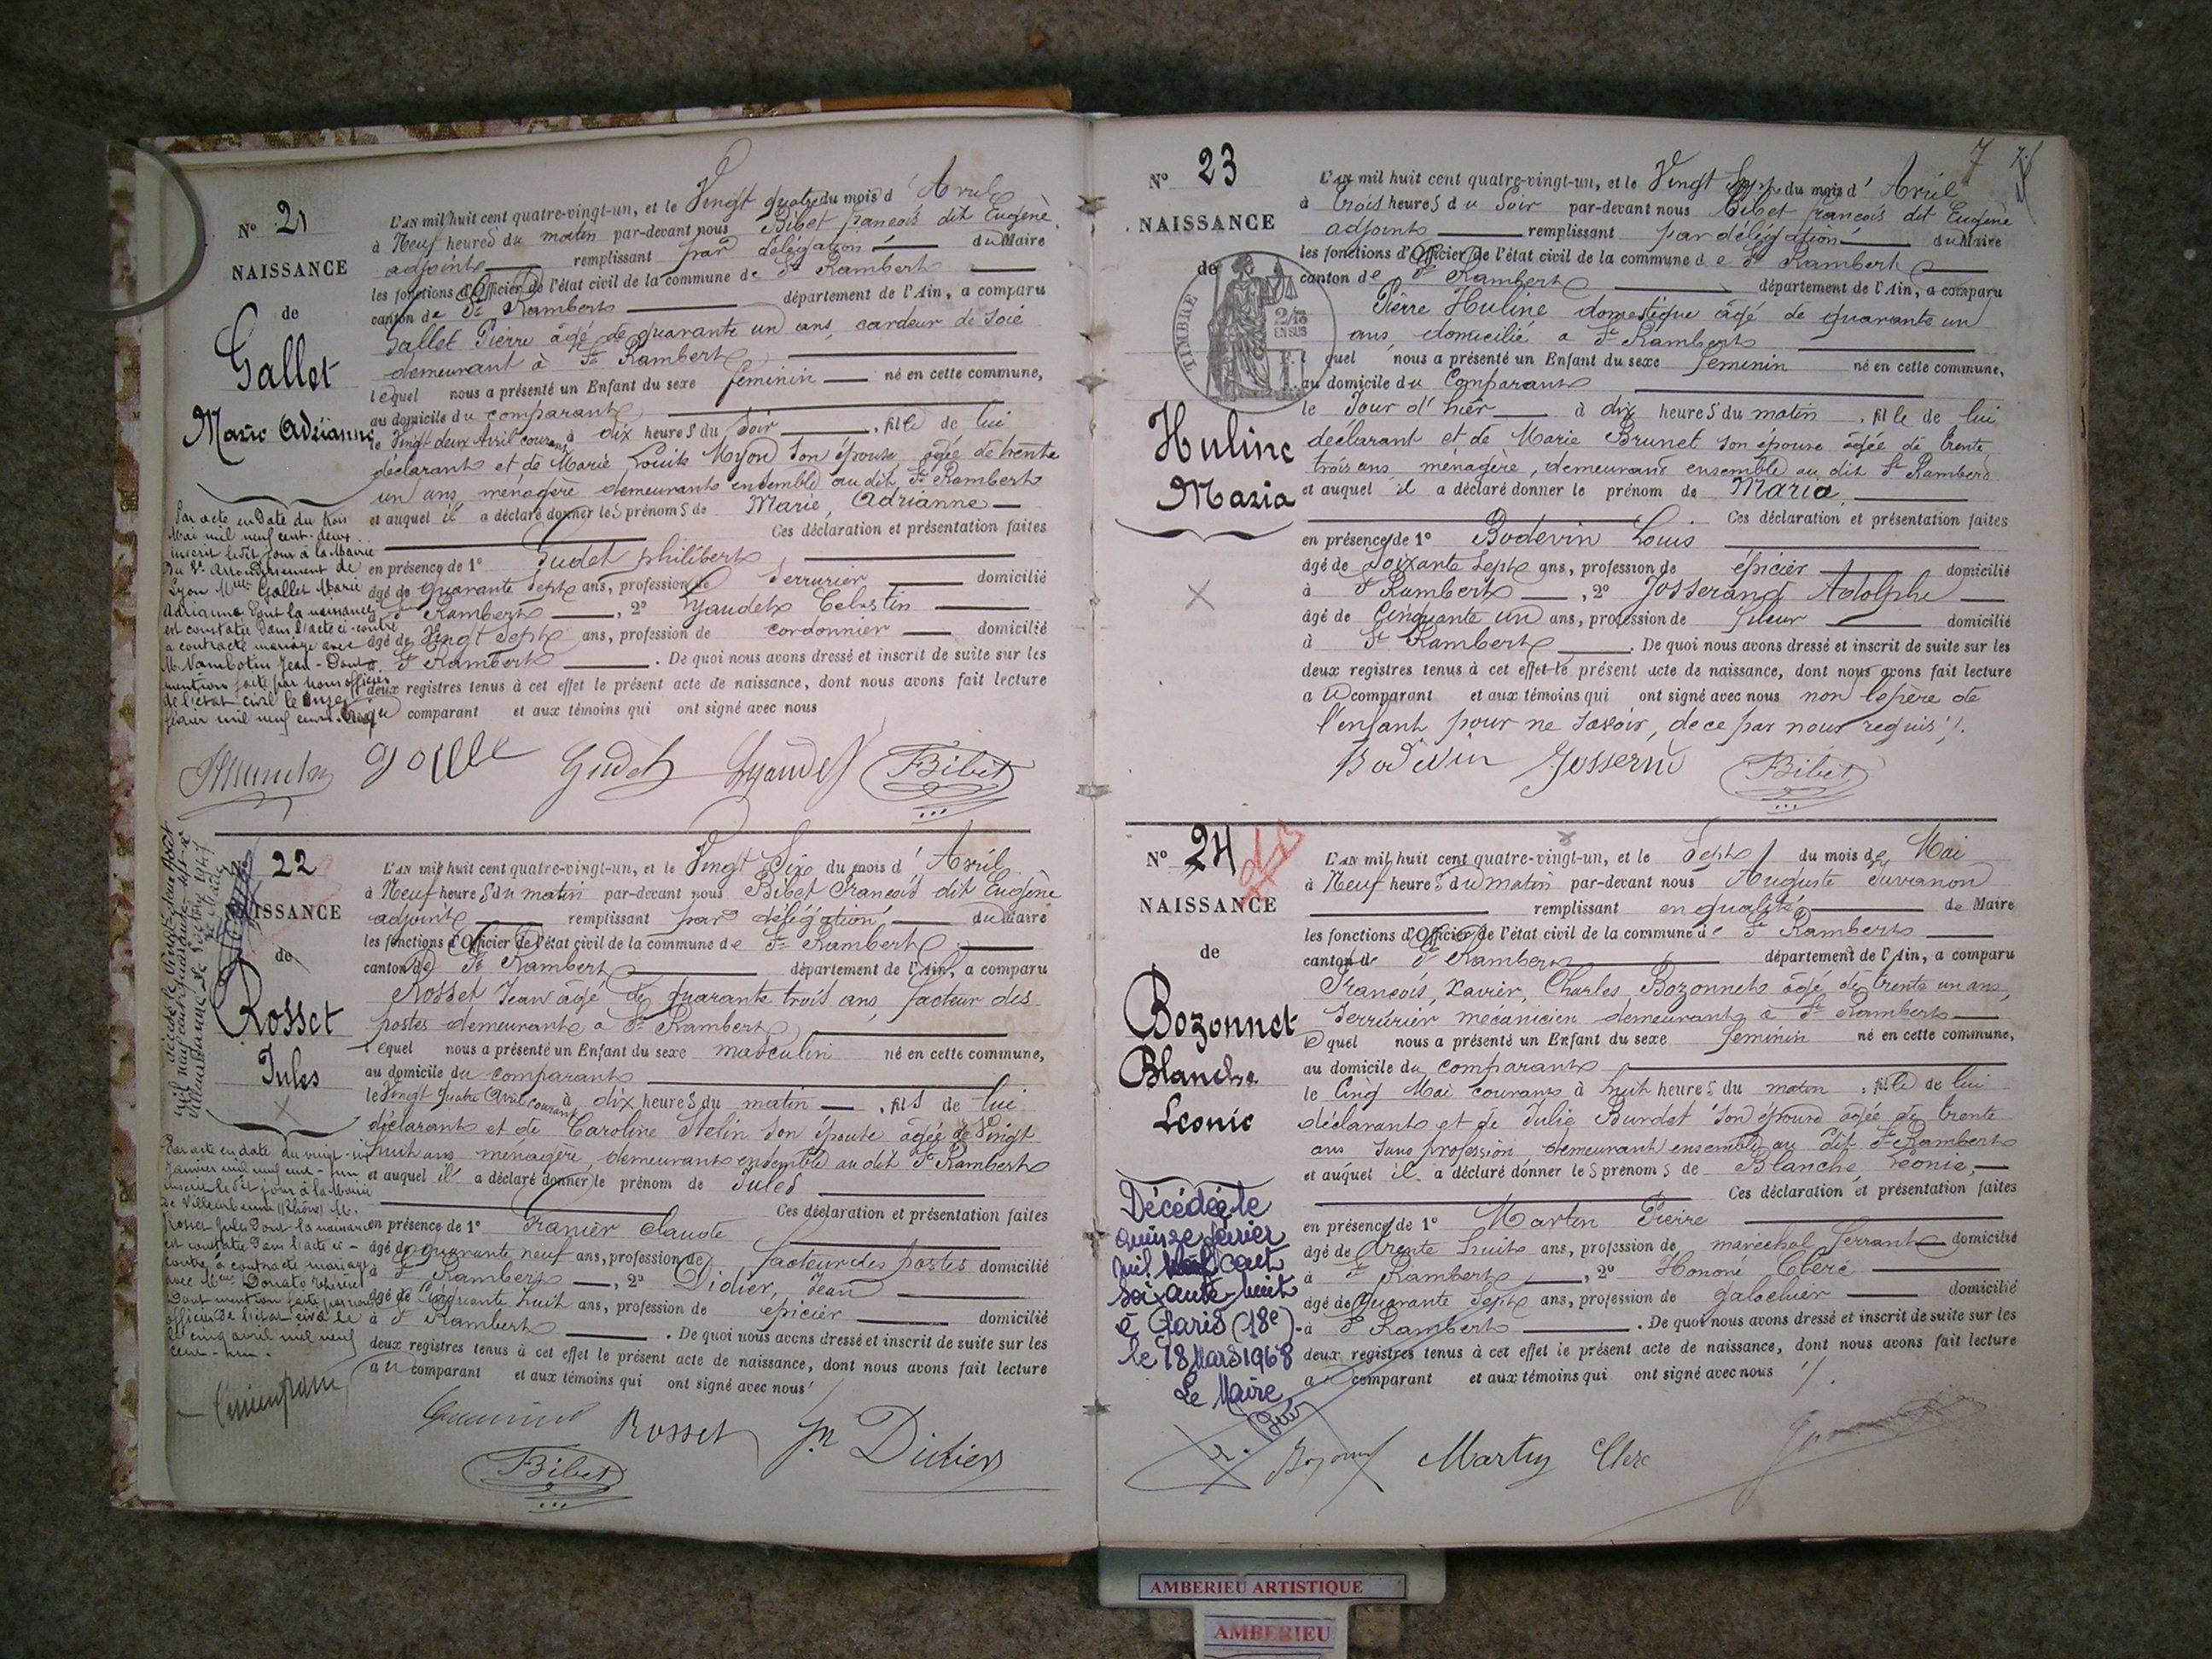 N° 21
NAISSANCE
de
Gallet
Marie Adrianne
L'AN mil huit cent quatre-vingt-un, et le Vingt quatre du mois d'Avril
à Neuf heures du matin par-devant nous Bibet francois dit Eugène
adjoint remplissant par délégation du Maire
les fonctions d'Officier de l'état civil de la commune de St Rambert
canton de St Rambert département de l'Ain, a comparu
Gallet Pierre âgé de quarante un ans, cardeur de soie
demeurant à St Rambert
lequel nous a présenté un Enfant du sexe féminin né en cette commune,
au domicile du comparant
le Vingt deux Avril courant à dix heures du soir, fille de lui
déclarant et de Marie Louise Myon son épouse âgée de trente
un ans, ménagère demeurant ensemble au dit St Rambert
et auquel il a déclaré donner les prénoms de Marie, Adrianne
Ces déclaration et présentation faites
en présence de 1° Gudet philibert
âgé de quarante sept ans, profession de serrurier domicilié
à St Rambert, 2° Gaudet Célestin
âgé de Vingt sept ans, profession de cordonnier domicilié
à St Rambert. De quoi nous avons dressé et inscrit de suite sur les
deux registres tenus à cet effet le présent acte de naissance, dont nous avons fait lecture
au comparant et aux témoins qui ont signé avec nous
Par acte en date du trois
Mai mil neuf cent-deux
inscrit ledit jour à la Mairie
du Ve arrondissement de
Lyon Melle Gallet Marie
Adrianne dont la naissance
est constatée dans l'acte ci-contre
a contracté mariage avec
M. Vambotin Jean-
mention faite par nous officier
de l'état civil le onze
février mil neuf cent
Gudet
Bibet
N° 22
NAISSANCE
de
Rosset
Jules
L'AN mil huit cent quatre-vingt-un, et le Vingt Six du mois d'Avril
à Neuf heures du matin par-devant nous Bibet Francois dit Eugène
adjoint remplissant par délégation du Maire
les fonctions d'Officier de l'état civil de la commune de St Rambert
canton de St Rambert département de l'Ain, a comparu
Rosset Jean âgé de quarante trois ans, facteur des
postes demeurant à St Rambert
lequel nous a présenté un Enfant du sexe masculin né en cette commune,
au domicile du comparant
le Vingt quatre Avril courant à dix heures du matin, fils de lui
déclarant et de Caroline Stelin son épouse âgée de Vingt
huit ans, ménagère, demeurant ensemble au dit St Rambert
et auquel il a déclaré donner le prénom de Jules
Ces déclaration et présentation faites
en présence de 1° Granier Claude
âgé de quarante neuf ans, profession de facteur des postes domicilié
à St Rambert, 2° Didier, Jean
âgé de Cinquante huit ans, profession de épicier domicilié
à St Rambert. De quoi nous avons dressé et inscrit de suite sur les
deux registres tenus à cet effet le présent acte de naissance, dont nous avons fait lecture
au comparant et aux témoins qui ont signé avec nous
Par acte en date du vingt-six
Janvier mil neuf cent-un
inscrit le dit jour à la Mairie
de Villeurbanne (Rhône) M.
Rosset Jules dont la naissance
est constatée dans l'acte ci-
contre, a contracté mariage
avec Melle Donato
Dont mention faite par nous
officier de l'état civil le
cinq avril mil neuf
cent-un.
Rosset
Jn Didier
Bibet
7
N° 23
NAISSANCE
de
TIMBRE
2/10 EN SUS
Huline
Maria
L'AN mil huit cent quatre-vingt-un, et le Vingt Sept du mois d'Avril
à trois heures du soir par-devant nous Bibet francois dit Eugène
adjoint remplissant par délégation du Maire
les fonctions d'Officier de l'état civil de la commune de St Rambert
canton de St Rambert département de l'Ain, a comparu
Pierre Huline domestique âgé de quarante un
ans, domicilié à St Rambert
lequel nous a présenté un Enfant du sexe féminin né en cette commune,
au domicile du Comparant
le Jour d'hier à dix heures du matin, fille de lui
déclarant et de Marie Brunet son épouse âgée de trente
trois ans ménagère, demeurant ensemble au dit St Rambert
et auquel il a déclaré donner le prénom de Maria
Ces déclaration et présentation faites
en présence de 1° Bodevin Louis
âgé de soixante sept ans, profession de épicier domicilié
à St Rambert, 2° Josserand Adolphe
âgé de Cinquante un ans, profession de fileur domicilié
à St Rambert. De quoi nous avons dressé et inscrit de suite sur les
deux registres tenus à cet effet le présent acte de naissance, dont nous avons fait lecture
au comparant et aux témoins qui ont signé avec nous non le père de
l'enfant pour ne savoir, de ce par nous requis ./.
Bodevin
Bibet
N° 24
NAISSANCE
de
Bozonnet
Blanche
Léonie
L'AN mil huit cent quatre-vingt-un, et le Sept du mois de Mai
à Neuf heures du matin par-devant nous Auguste Juvanon
remplissant en qualité de Maire
les fonctions d'Officier de l'état civil de la commune de St Rambert
canton de St Rambert département de l'Ain, a comparu
François, Xavier, Charles Bozonnet âgé de trente un ans,
serrurier mecanicien demeurant à St Rambert
lequel nous a présenté un Enfant du sexe féminin né en cette commune,
au domicile du comparant
le Cinq Mai courant à huit heures du matin, fille de lui
déclarant et de Julie Burdet son épouse âgée de trente
ans sans profession demeurant ensemble au dit St Rambert
et auquel il a déclaré donner les prénoms de Blanche Léonie,
Ces déclaration et présentation faites
en présence de 1° Martin Pierre
âgé de trente huit ans, profession de maréchal ferrant domicilié
à St Rambert, 2° Honoré Clerc
âgé de quarante sept ans, profession de galochier domicilié
à St Rambert. De quoi nous avons dressé et inscrit de suite sur les
deux registres tenus à cet effet le présent acte de naissance, dont nous avons fait lecture
au comparant et aux témoins qui ont signé avec nous ./.
Décédée le
quinze février
mil neuf cent
soixante-huit
à Paris (18e)-
le 18 Mars 1968
Le Maire
Martin
Clerc
AMBERIEU ARTISTIQUE
AMBERIEU